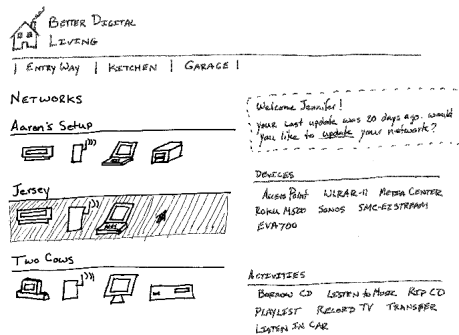 Better Digital
Living
| Entry Way | Kitchen | Garage |
Networks
Aaron's Setup
Jersey
Two Cows
Welcome Jennifer!
Your last update was 20 days ago. would
you like to update your network?
Devices
Access Point WiRAR-11 Media Center
Roku M500 Sonos SMC-EZSTREAM
EVA700
Activities
Borrow CD Listen to Music Rip CD
Playlist Record TV Transfer
Listen in Car